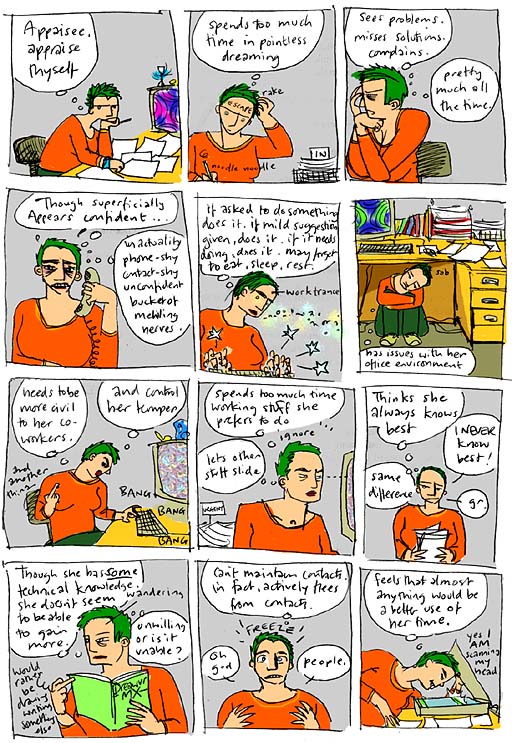 Appaisee,
appraise
thyself
Spends too much
time in pointless
dreaming
escape
rake
noodle noodle
IN
Sees problems.
misses solutions.
complains.
pretty
much all
the time.
Though superficially
Appears confident...
in actuality
phone-shy
contact-shy
unconfident
bucket of
melting
nerves.
if asked to do something
does it. if mild suggestion
given, does it. if it needs
doing, does it. may forget
to eat, sleep, rest.
work trance
sob
has issues with her
office environment
needs to be
more civil
to her co-
workers.
and control
her temper.
and
another
thing
BANG
BANG
BANG
Spends too much time
working stuff she
prefers to do
ignore
lets other
stuff slide
URGENT
Thinks she
always knows
best
I NEVER
know
best!
same
difference
gr.
Though she has some
technical knowledge.
she doesn't seem
to be able
to gain
more.
wandering
unwilling
or is it
unable?
would
rather
be
drawing
writing
something
else
MX
Can't maintain contacts.
in fact, actively flees
from contacts.
FREEZE!
oh
god
people.
feels that almost
anything would be
a better use of
her time.
yes I
AM
scanning
my
head